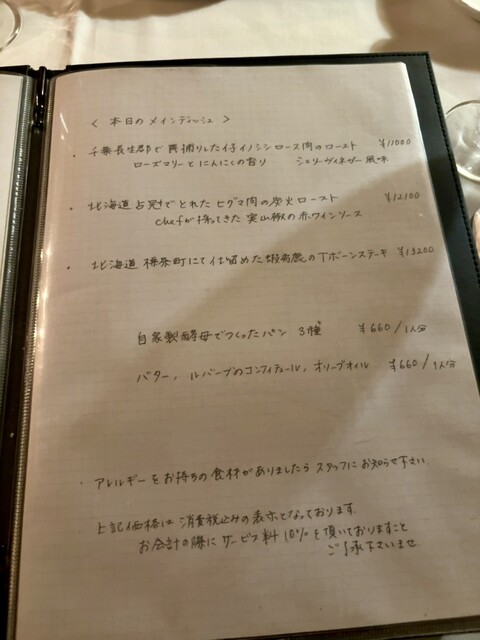 < 本日のメインディッシュ >
・ 千葉長生郡で罠捕りした仔イノシシロース肉のロースト ¥11000
ローズマリーとにんにくの香り シェリーヴィネガー風味
・ 北海道占冠でとれたヒグマ肉の炭火ロースト ¥12100
chefが採ってきた実山椒の赤ワインソース
・ 北海道 標茶町にて仕留めた蝦夷鹿のTボーンステーキ ¥13200
自家製酵母でつくったパン 3種 ¥660/1人分
バター, ルバーブのコンフィチュール, オリーブオイル ¥660/1人分
・ アレルギーをお持ちの食材がありましたらスタッフにお知らせ下さい.
上記価格は消費税込みの表示となっております.
お会計の際にサービス料10%を頂いておりますこと
ご了承下さいませ